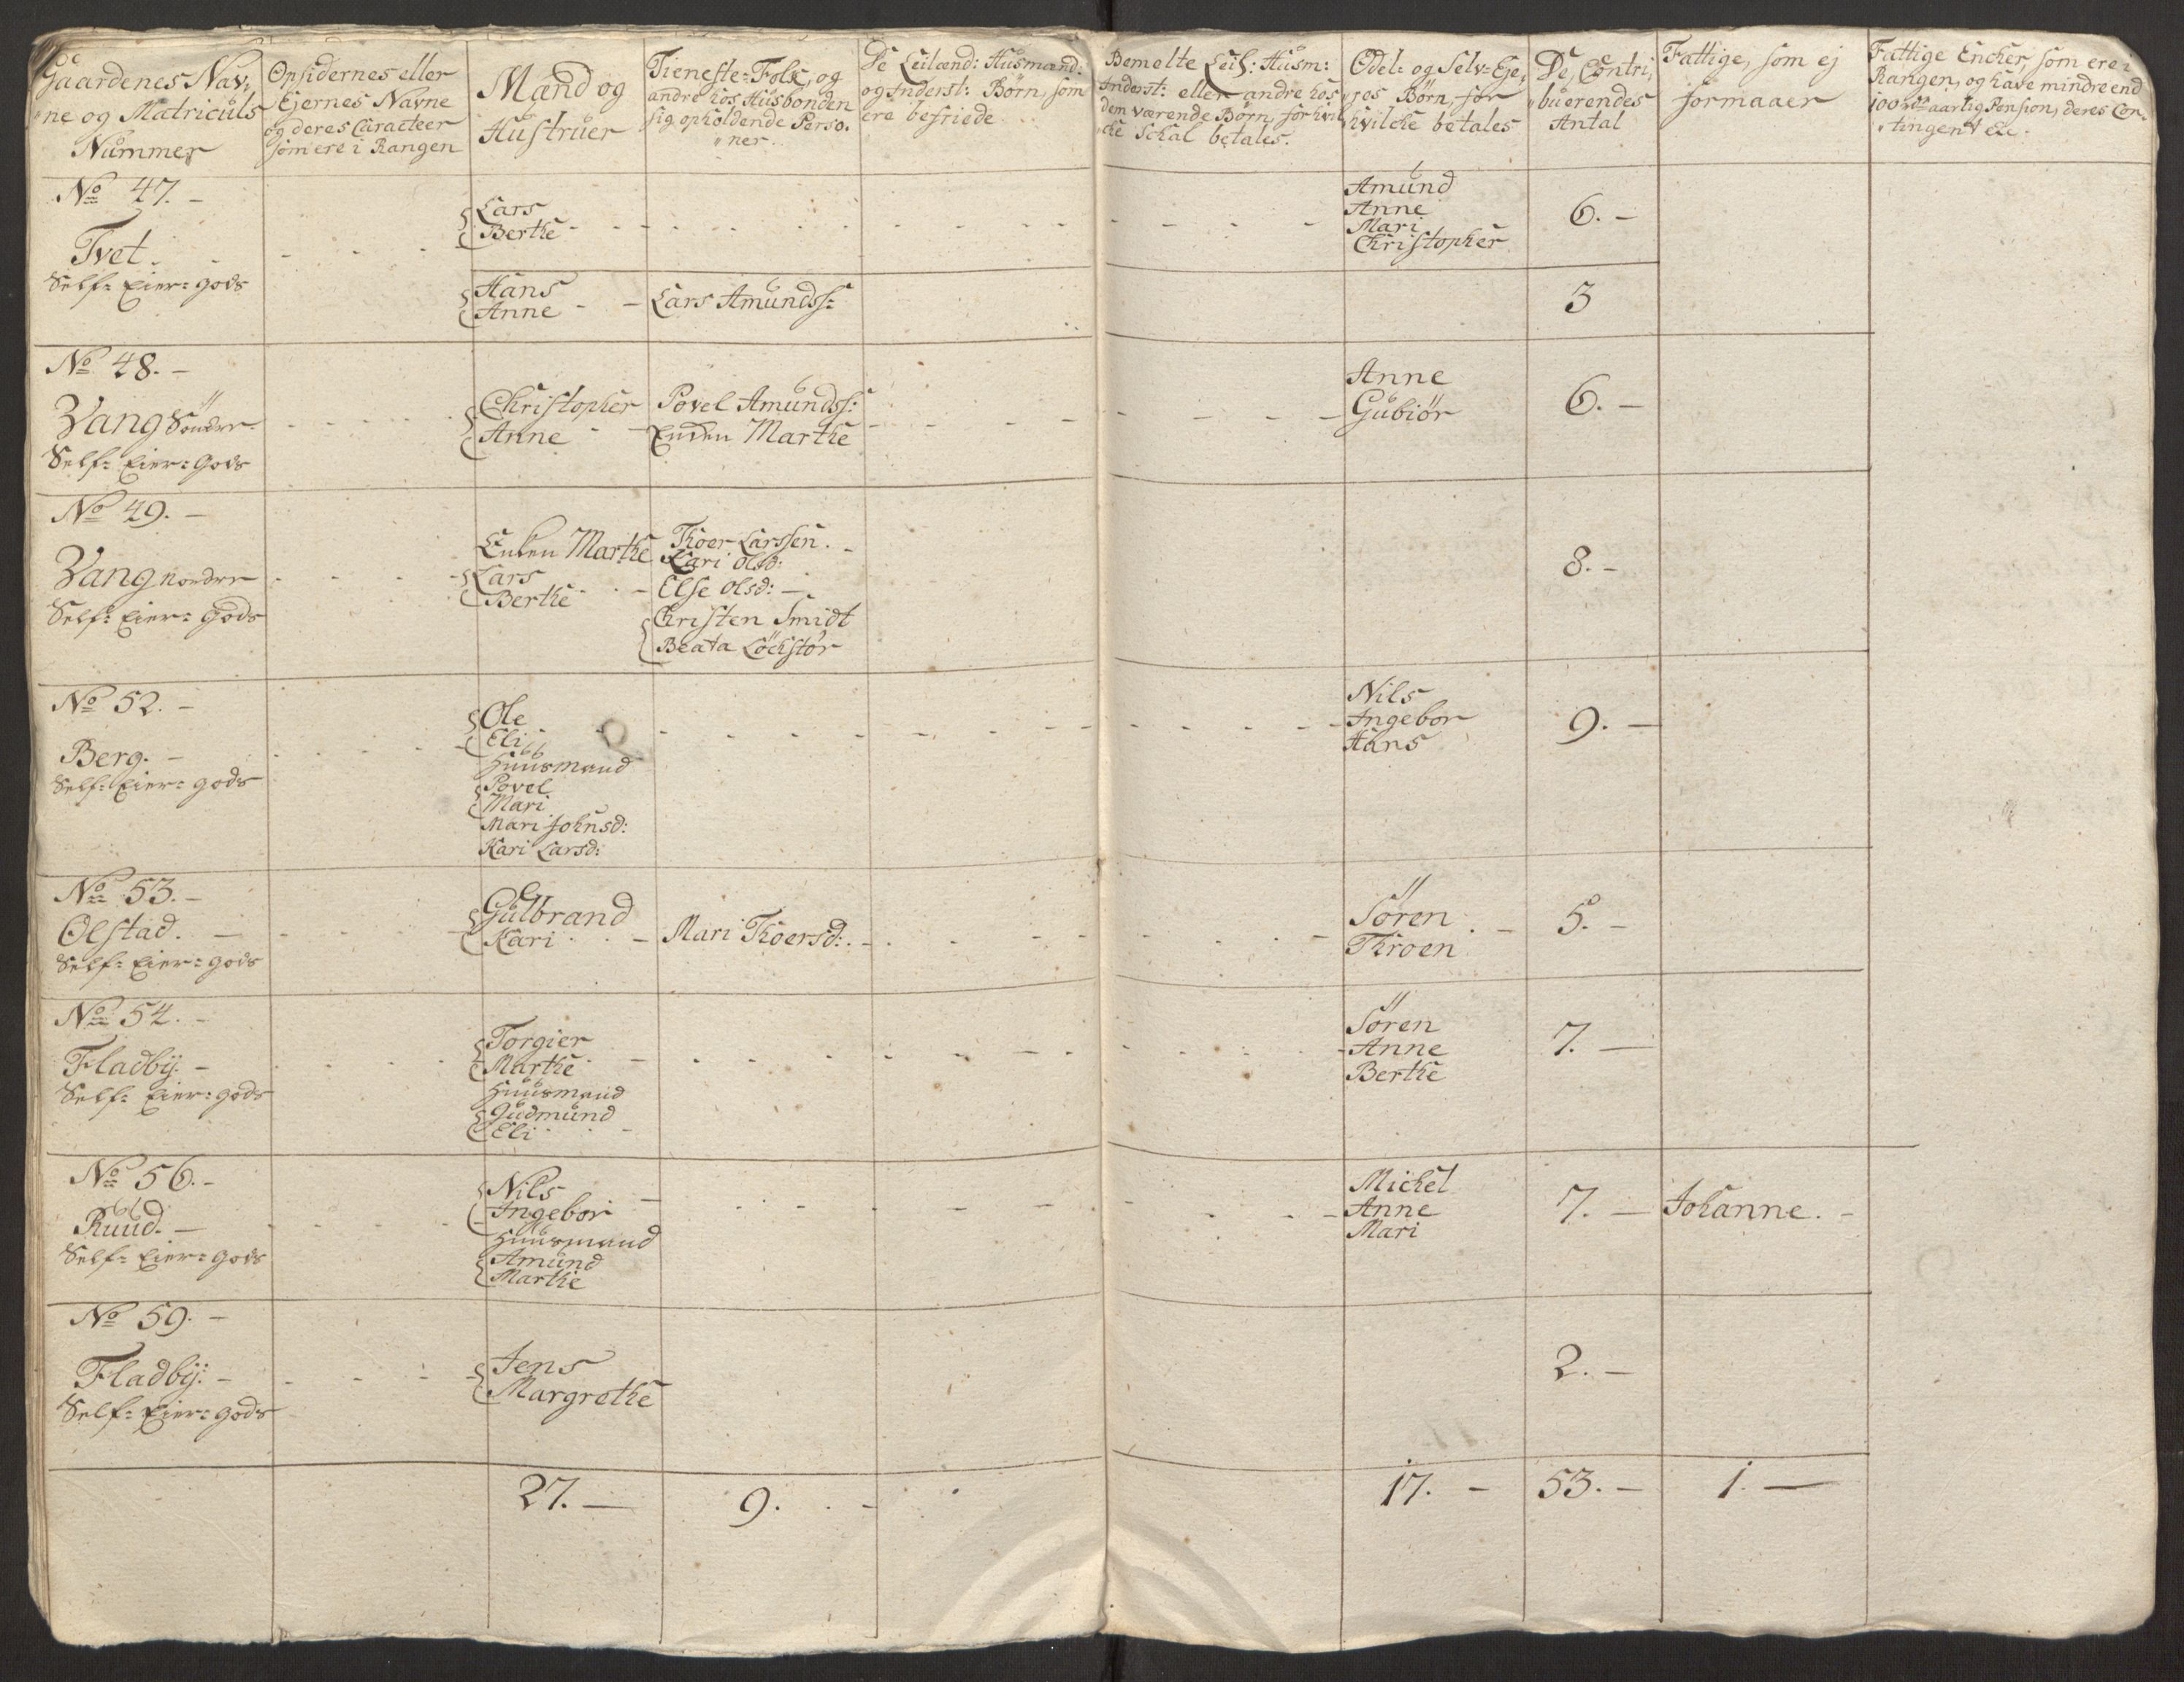 Gaardenes Nav,
"ne og Matriculs
Nummer
Opsidernes eller
Ejernes Navne
og deres Caracteer
som ere i Rangen
Mænd og
Hustruer
Tieneste-Folk, og
andre hos Husbonden
sig opholdende Perso,
"ner.
De Leilænd: Husmænd:
og Inderst: Börn, som
ere befriede
Bemelte Leil: Husm:
Inderst: eller andre hos
dem værende Börn, for hvil
"cke Schal betales.
Odel- og Selv-Eje,
"res Börn, for
hvilcke betales
De, Contri,
"buerendes
Antal
Fattige, som ej
formaaer
Fattige Encker, som ere i
Rangen, og have mindre end
100 aarlig Pension, deres Con,
"tingent Etc.
No 47. -
Tvet.
Self- Eier- gods
Lars
Berthe
Amund
Anne
Mari
Christopher
6. -
Hans
Anne
Lars Amundss:
3
No 48. -
Vang Söndre
Self- Eier- Gods
Christopher
Anne
Povel Amundss:
Encken Marthe
Anne
Gubiör
6. -
No 49. -
Vang Nordre
Self- Eier- Gods
Encken Marthe
Lars
Berthe
Thoer Larssen.
Kari Olsd:
Else Olsd:
Christen Smidt
Beata Löchstör
8. -
No 52. -
Berg. -
Self- Eier- gods
Ole
Eli
Huusmand
Povel
Mari
Mari Johnsd:
Kari Larsd:
Nils
Ingebor
Hans
9. -
No 53. -
Olstad. -
Self- Eier- gods
Gulbrand
Kari
Mari Thoersd:
Sören
Throen
5. -
No 54. -
Fladbÿ. -
Self- Eier- gods
Torgier
Marthe
Huusmand
Gudmund
Eli
Sören
Anne
Berthe
7. -
No 56. -
Ruud. -
Self- Eier- gods
Nils
Ingebor
Huusmand
Amund
Marthe
Michel
Anne
Mari
7. -
Johanne. -
No 59. -
Fladbÿ. -
Self- Eier- gods
Jens
Margrethe
2. -
27. -
9. -
17. -
53. -
1. -